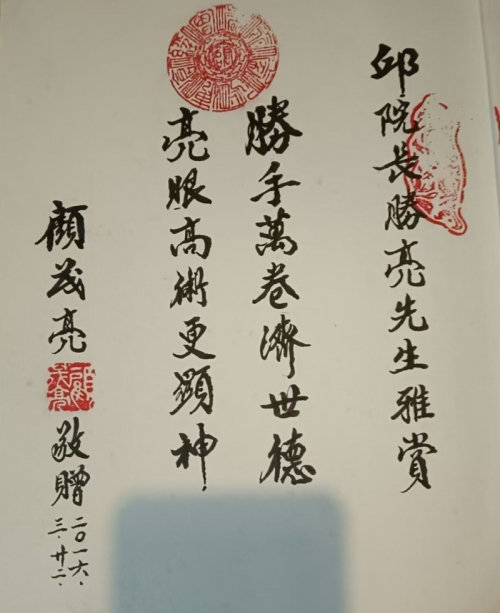 邱院長勝亮先生雅賞
勝手萬卷濟世德
亮眼高術更顯神
顏茂亮
敬贈
二〇一六、
三、廿二、